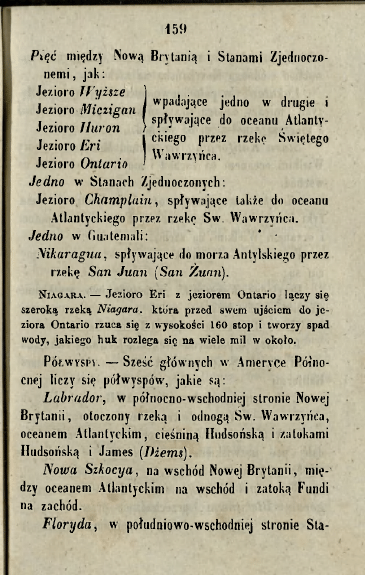 159
Pięć między Nową Brytanią i Stanami Zjednoczo-
nemi, jak:
Jezioro Wyższe
Jezioro Miczigan
Jezioro Huron
Jezioro Eri
Jezioro Ontario
wpadające jedno w drugie i
spływające do oceanu Atlanty-
ckiego przez rzekę Świętego
Wawrzyńca.
Jedno w Stanach Zjednoczonych:
Jezioro Champlain, spływające także do oceanu
Atlantyckiego przez rzekę Sw. Wawrzyńca.
Jedno w Guatemali:
Nikaragua, spływające do morza Antylskiego przez
rzekę San Juan (San Żuan).
NIAGARA. — Jezioro Eri z jeziorem Ontario łączy się
szeroką rzeką Niagara. która przed swem ujściem do je-
ziora Ontario rzuca się z wysokości 160 stop i tworzy spad
wody, jakiego huk rozlega się na wiele mil w około.
PÓŁWYSPY. — Sześć głównych w Ameryce Półno-
cnej liczy się półwyspów, jakie są:
Labrador, w północno-wschodniej stronie Nowej
Brytanii, otoczony rzeką i odnogą Sw. Wawrzyńca,
oceanem Atlantyckim, cieśniną Hudsońską i zatokami
Hudsońską i James (Dżems).
Nowa Szkocya, na wschód Nowej Brytanii, mię-
dzy oceanem Atlantyckim na wschód i zatoką Fundi
na zachód.
Floryda, w południowo-wschodniej stronie Sta-